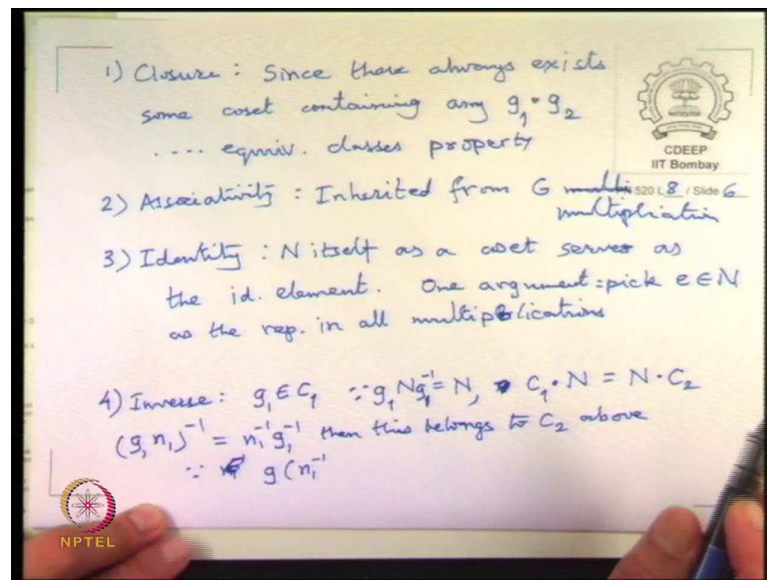 1) Closure : Since there always exists
some coset containing any g₁ • g₂
.... equiv. classes property
CDEEP
IIT Bombay
520 L 8 / Slide 6
2) Associativity : Inherited from G multi
multiplication
3) Identity : N itself as a coset serves as
the id. element. One argument = pick e ∈ N
as the rep. in all multiplications
4) Inverse : g₁ ∈ C₁ ∵ g₁ N g₁⁻¹ = N, C₁ • N = N • C₂
(g₁ n₁)⁻¹ = n₁⁻¹ g₁⁻¹ then this belongs to C₂ above
∵ g (n₁⁻¹
NPTEL